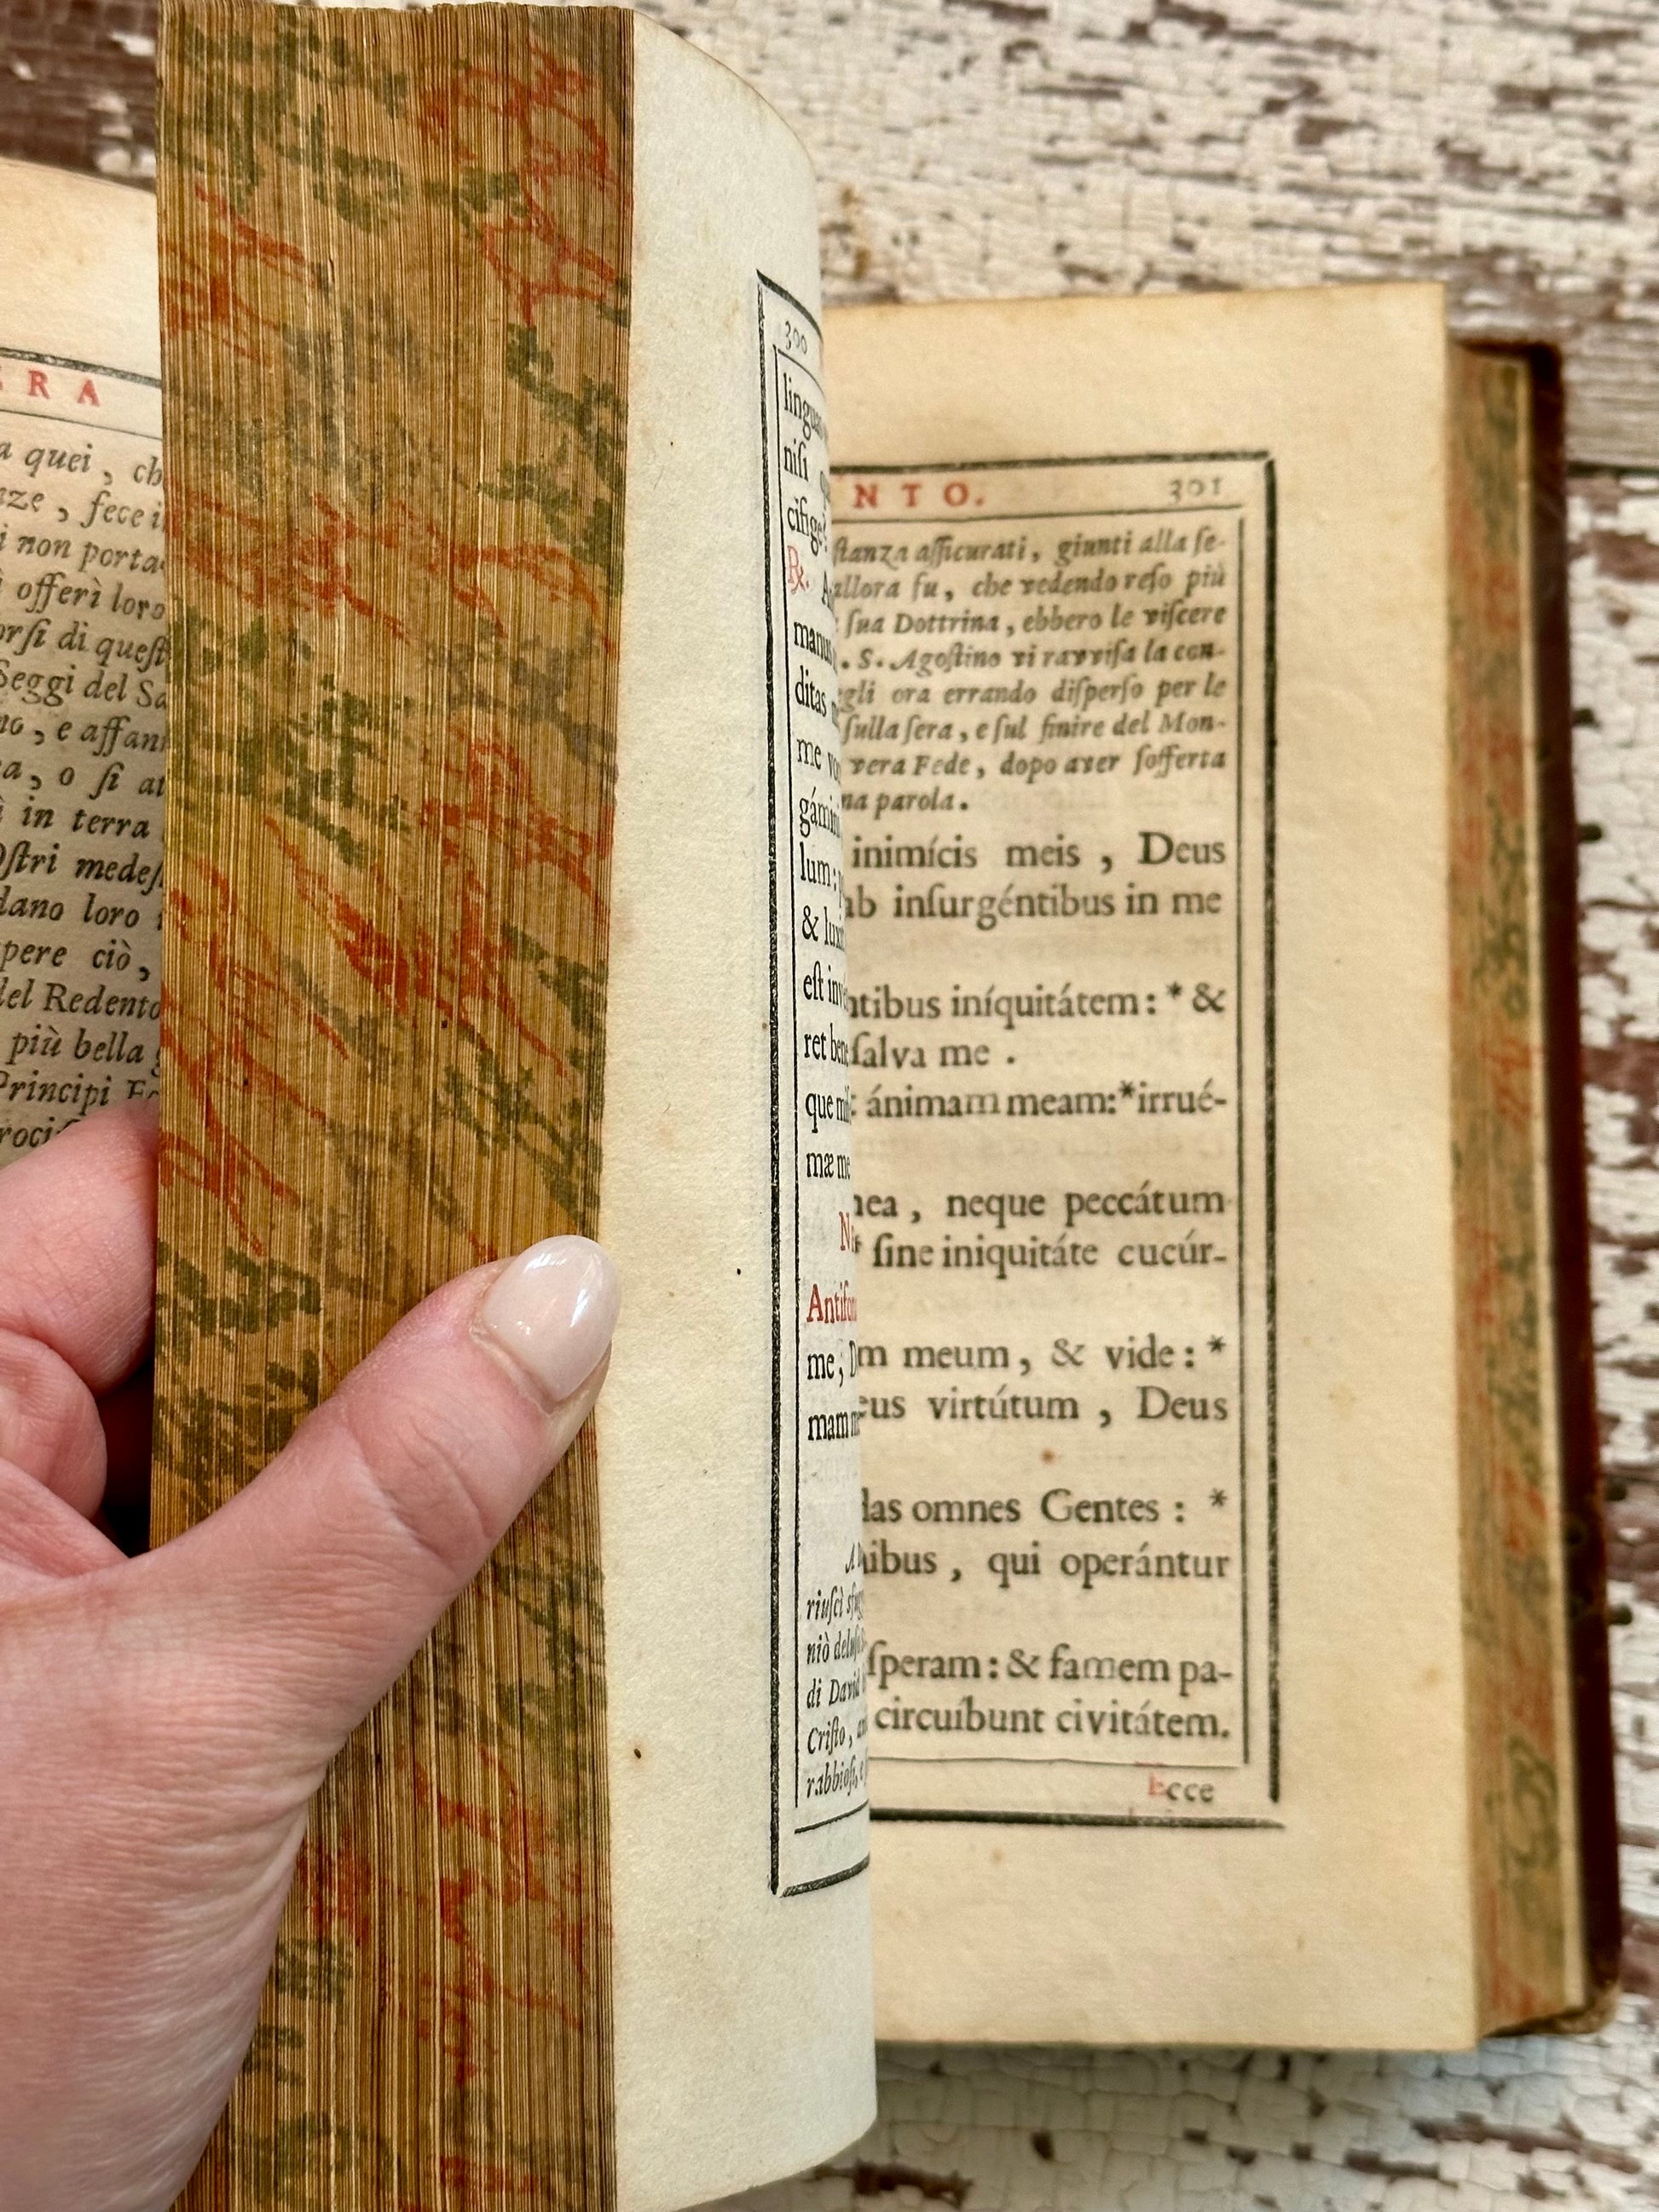 RA
quei, ch
ze, fece i
i non porta-
offerì loro
orſi di queſt
Seggi del Sa
no, e affan
a, o ſi
ì in terra
oſtri medeſ
dano loro
pere ciò,
del Redento
più bella
Principi
300
lingua
niſi
cífige
℟. A
manus
ditas
me
gámin
lum:
& lux
eſt inv
ret bene
que
mæ me
N
Antifon
me, D
mam
A
riuſcì
niò
di David
Criſto,
rabbioſ
NTO. 301
ſtanza aſſicurati, giunti alla ſe-
allora fu, che vedendo reſo più
ſua Dottrina, ebbero le viſcere
. S. Agoſtino vi ravviſa la con-
egli ora errando diſperſo per le
ſulla ſera, e ſul finire del Mon-
vera Fede, dopo aver ſofferta
na parola.
inimícis meis, Deus
ab inſurgéntibus in me
ntibus iníquitátem: * &
ſalva me.
: ánimam meam: * irrué-
mea, neque peccátum
* ſine iniquitáte cucúr-
m meum, & vide: *
eus virtútum, Deus
das omnes Gentes: *
nibus, qui operántur
ſperam: & famem pa-
circuíbunt civitátem.
Ecce